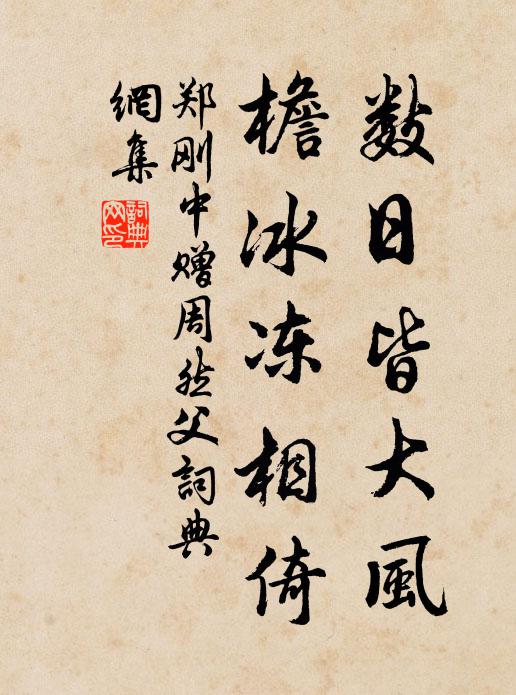 数日皆大風
檐冰冻相倚
郑刚中赠周然父詞典
網集
詞典
网印